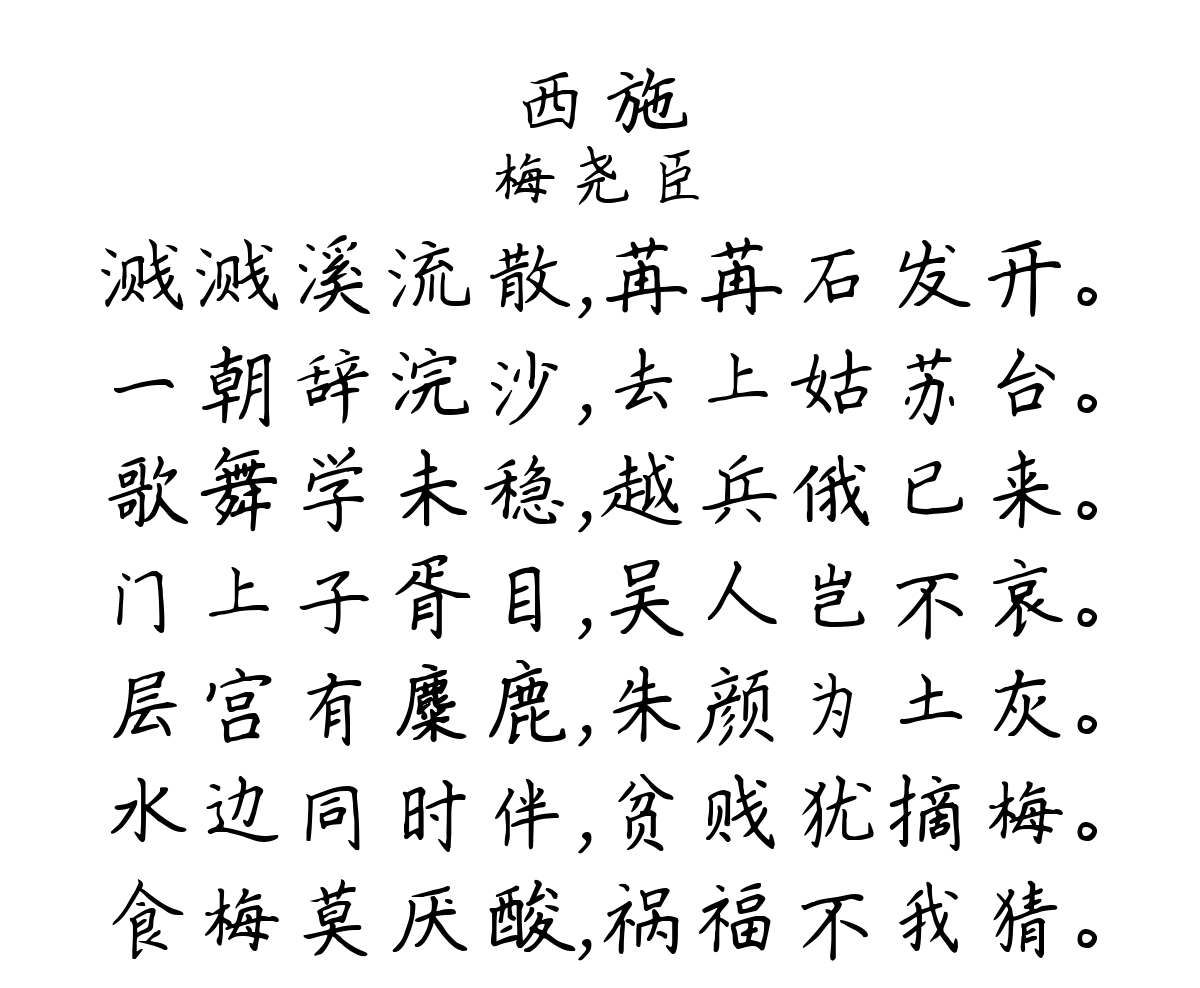 西施
梅尧臣
溅溅溪流散,苒苒石发开。
一朝辞浣沙,去上姑苏台。
歌舞学未稳,越兵俄已来。
门上子胥目,吴人岂不哀。
层宫有麋鹿,朱颜为土灰。
水边同时伴,贫贱犹摘梅。
食梅莫厌酸,祸福不我猜。